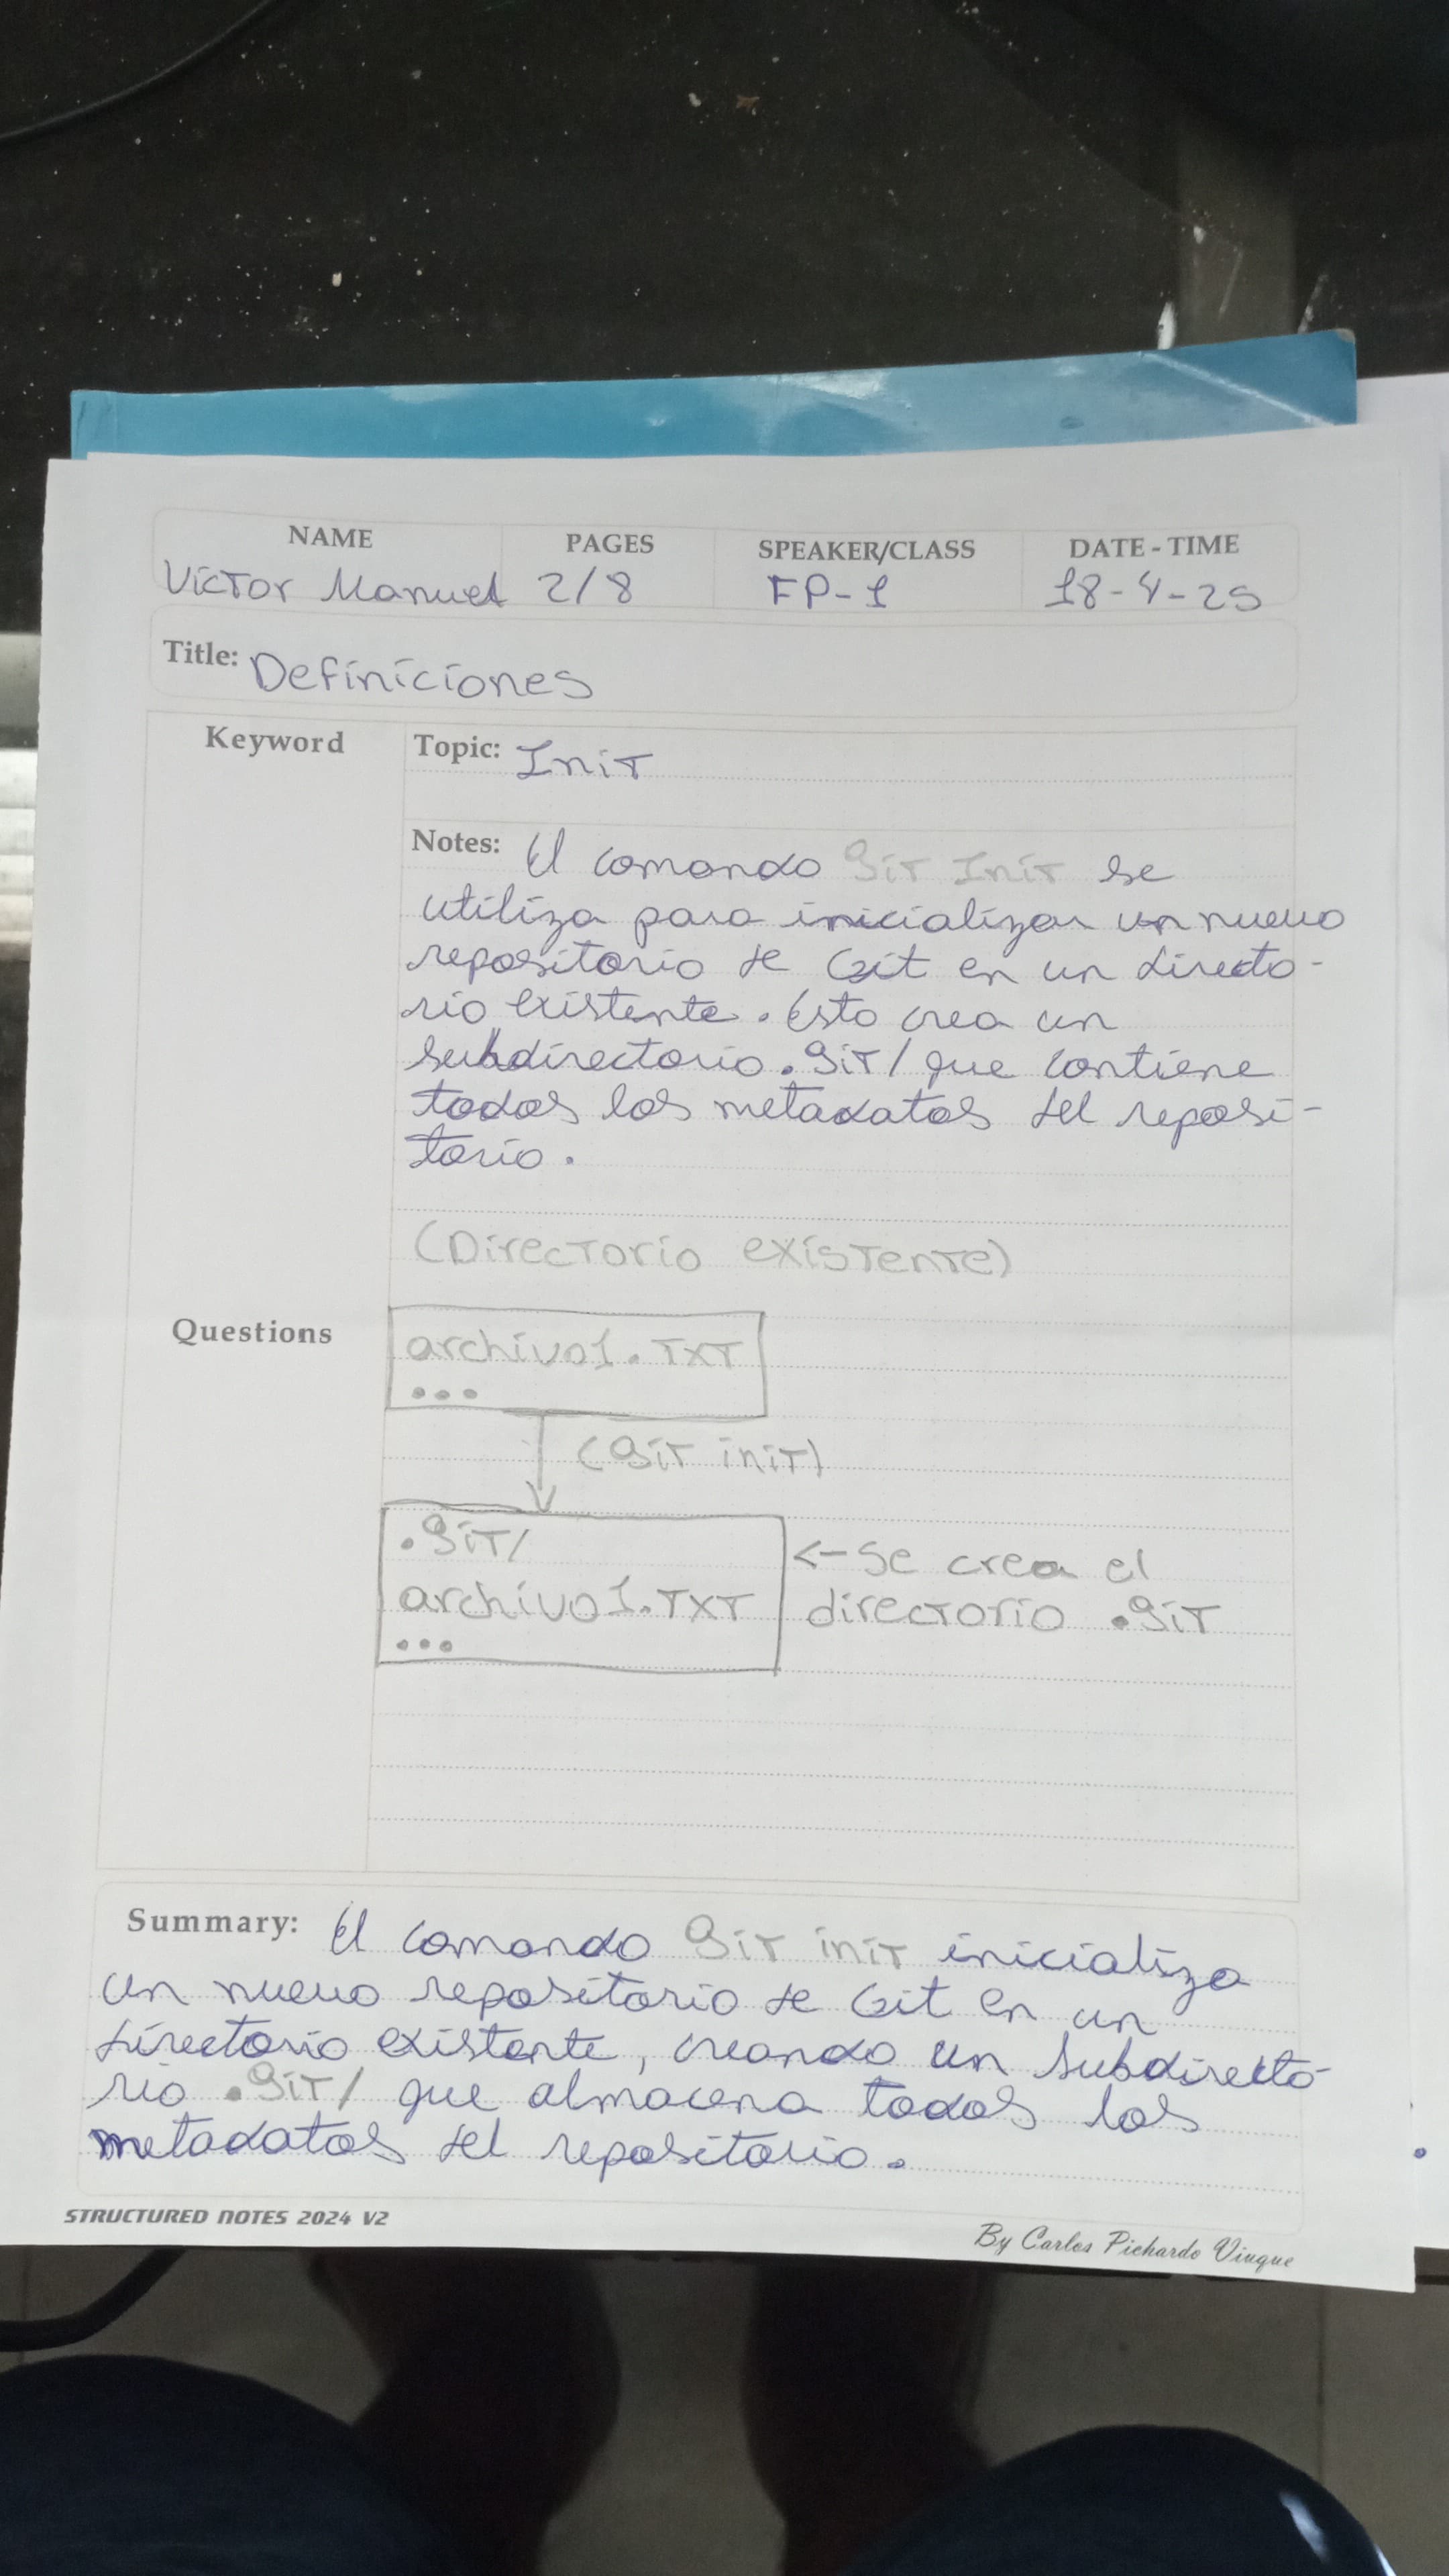 NAME PAGES SPEAKER/CLASS DATE - TIME
Víctor Manuel 2/8 FP-1 18-4-25
Title: Definiciones
Keyword
Topic: Init
Notes: El comando git Init se
utiliza para inicializar un nuevo
repositorio de Git en un directo-
rio existente. Esto crea un
subdirectorio .git/ que contiene
todos los metadatos del reposi-
torio.
(Directorio existente)
Questions
archivo1.txt
...
(git init)
.git/
archivo1.txt
...
<- Se crea el
directorio .git
Summary: El comando git init inicializa
un nuevo repositorio de Git en un
directorio existente, creando un subdirecto-
rio .git/ que almacena todos los
metadatos del repositorio.
STRUCTURED NOTES 2024 V2
By Carlos Pichardo Viuque